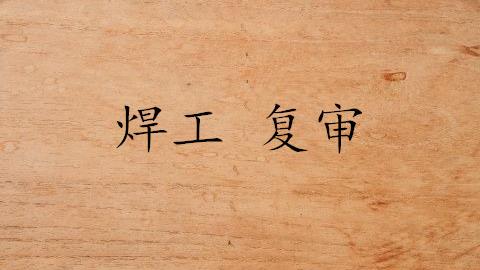 焊工 复审